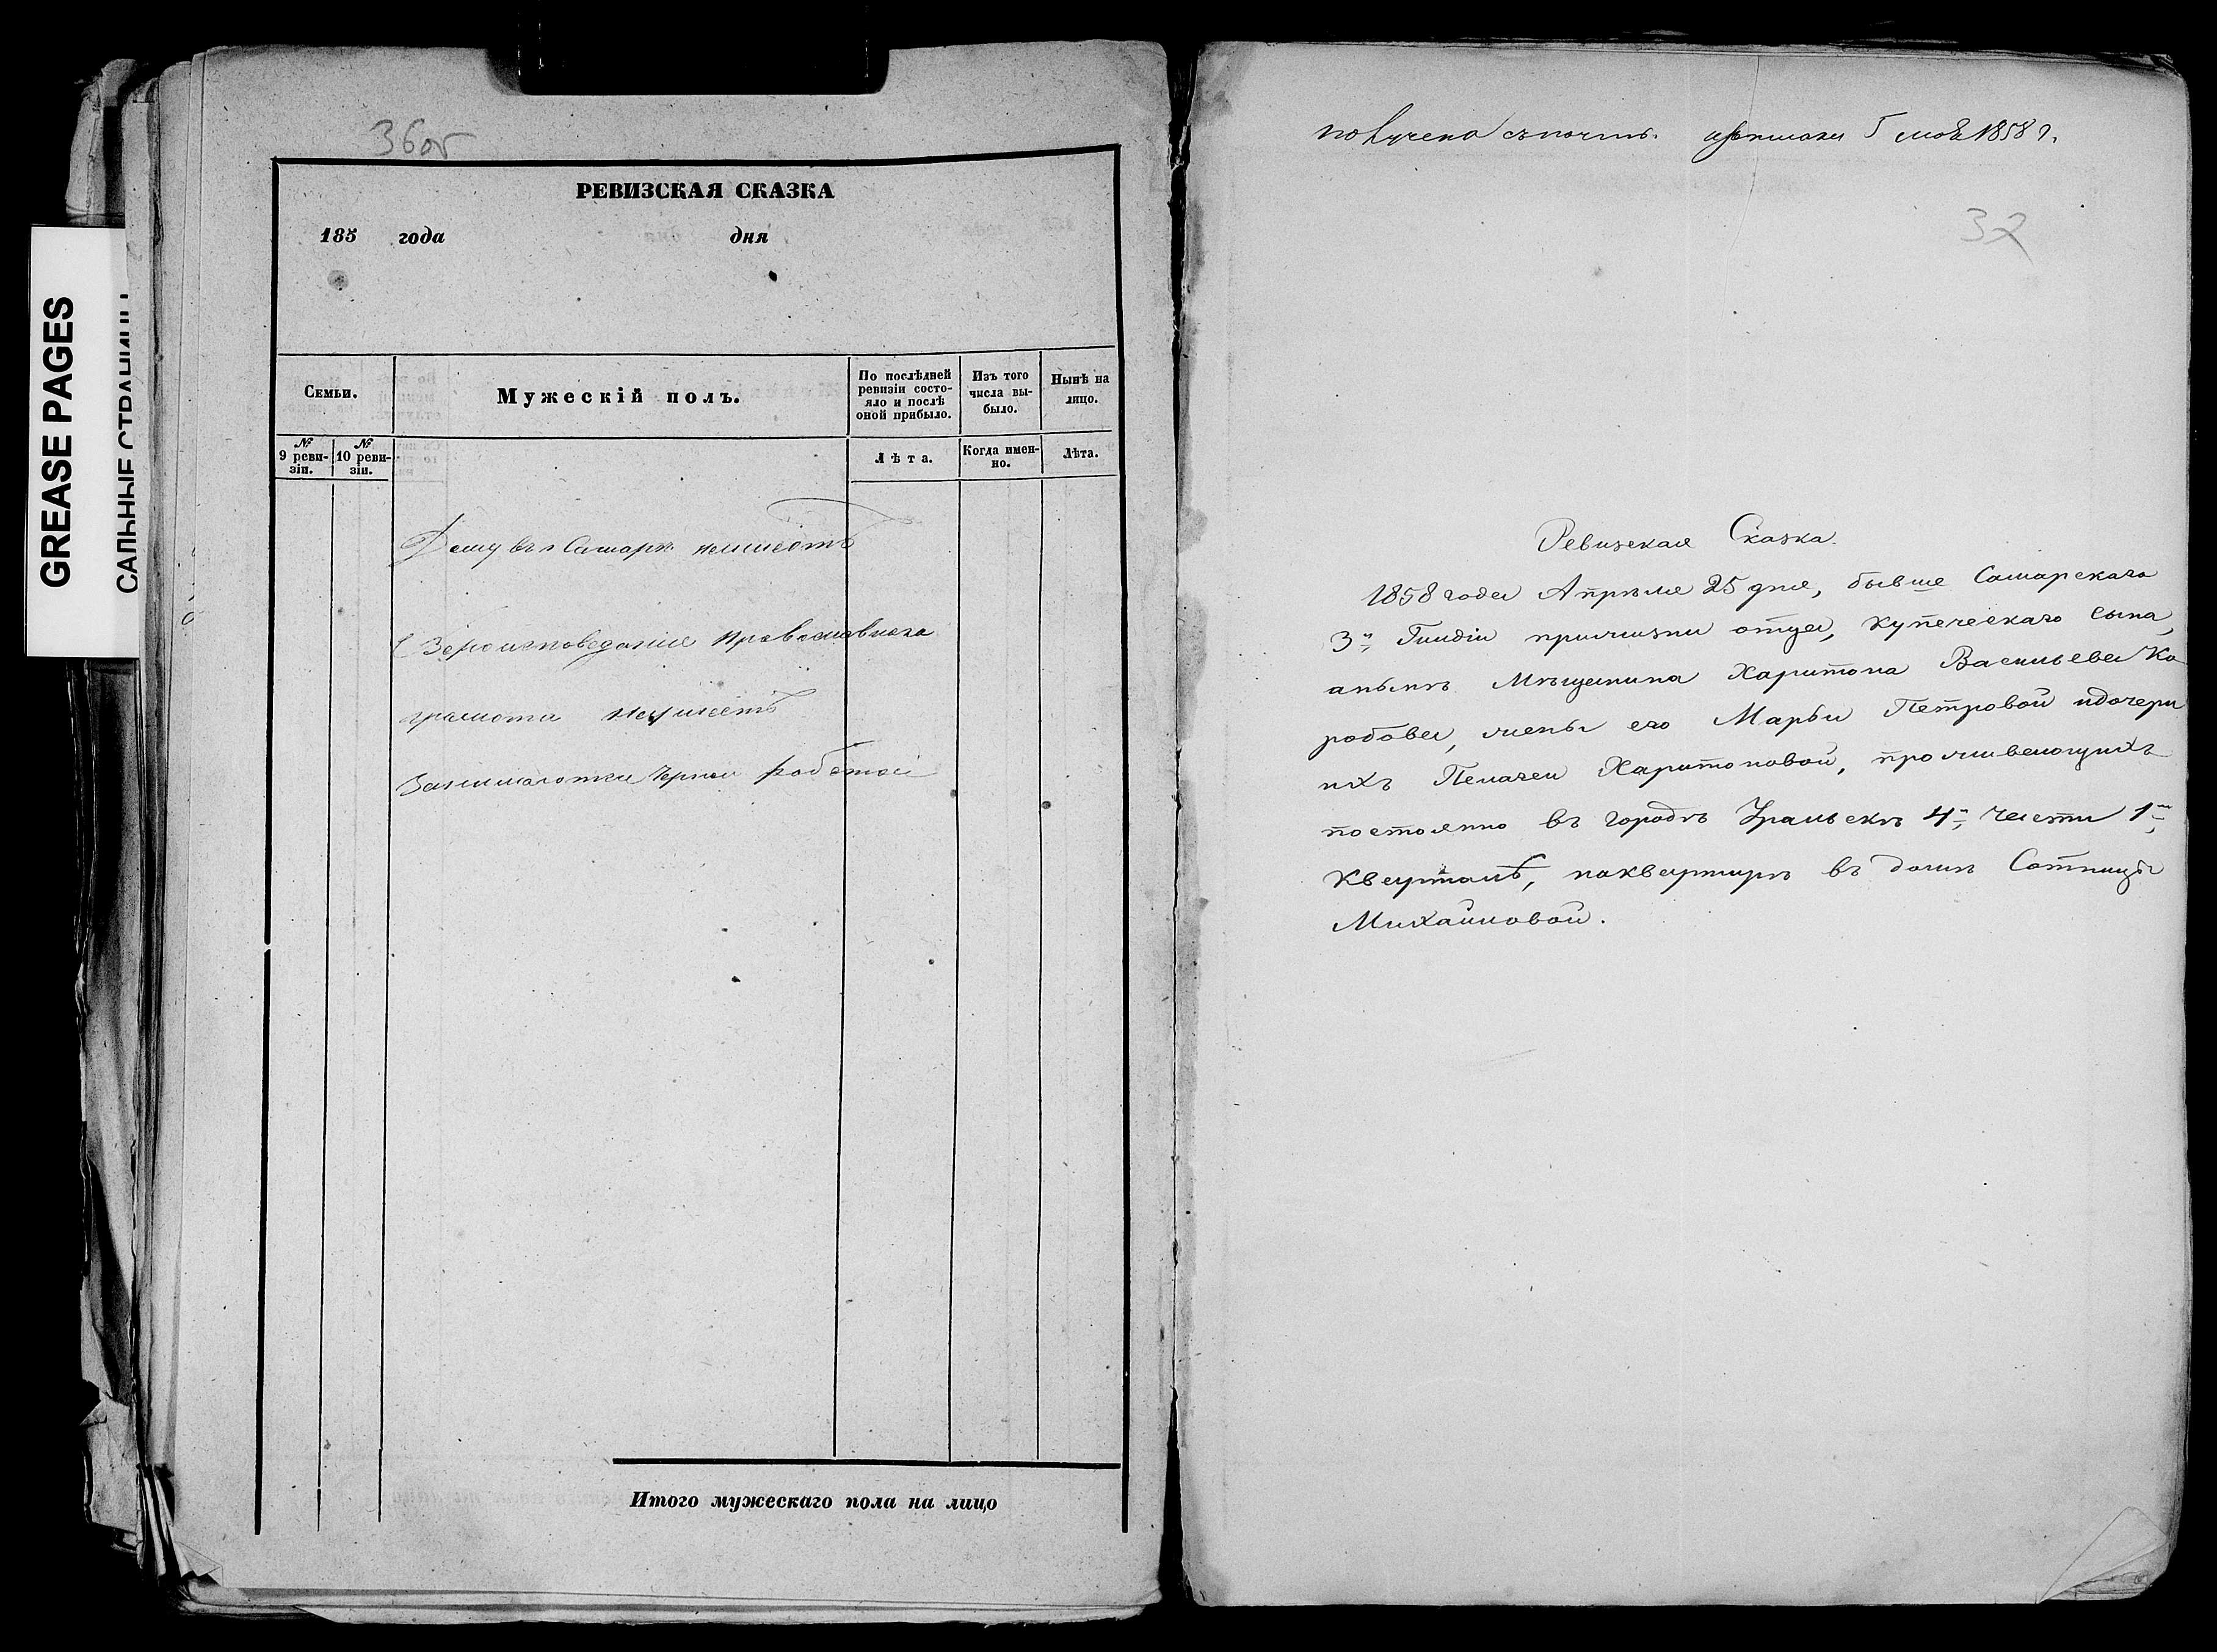 GREASE PAGES
САЛЬНЫЕ СТРАНИЦЫ
36об
РЕВИЗСКАЯ СКАЗКА
185 года дня
Семьи.
Мужескій полъ.
По послѣдней ревизіи состояло и послѣ оной прибыло.
Изъ того числа выбыло.
Нынѣ на лицо.
№ 9 ревизіи.
№ 10 ревизіи.
Лѣта.
Когда именно.
Лѣта.
Дому въ г Самарѣ неимѣетъ
Вероисповеданіе православнаго
грамоти неумѣетъ
Занимаютси черной работой
Итого мужескаго пола на лицо
получена съпочты. 5 мая 1858 г.
32
Ревизская Сказка.
1858 года Апрѣля 25 дня, бывше Самарскаго
3й Гилдіи прижизни отца, купеческаго сына,
анынѣ Мѣщанина Харитона Васильева Ка
робова, жены его Марьи Петровой идочери
ихъ Пелагеи Харитоновой, проживающихъ
постоянно въ городѣ Уральскѣ 4й части 1м
кварталѣ, наквартирѣ въ домѣ Сотницы
Михайловой.